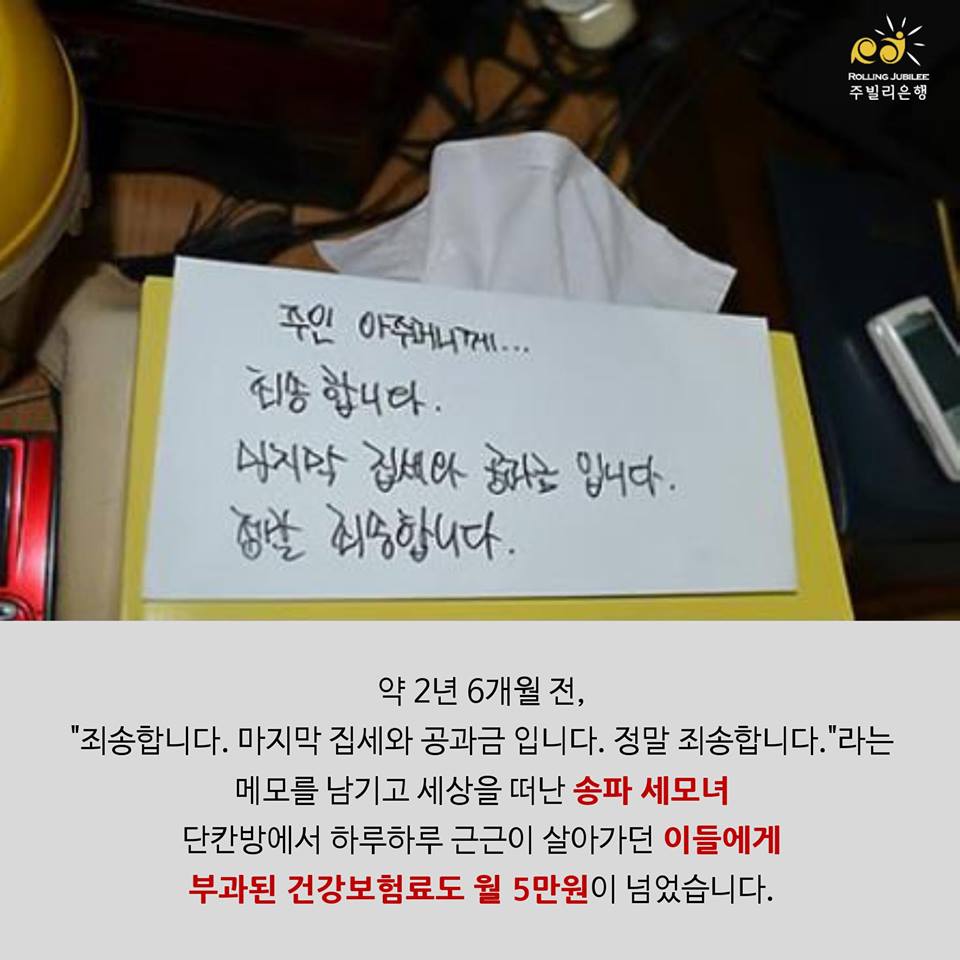 ROLLING JUBILEE
주빌리은행
주인 아주머니께...
죄송합니다.
마지막 집세와 공과금 입니다.
정말 죄송합니다.
약 2년 6개월 전,
"죄송합니다. 마지막 집세와 공과금 입니다. 정말 죄송합니다."라는
메모를 남기고 세상을 떠난 송파 세모녀
단칸방에서 하루하루 근근이 살아가던 이들에게
부과된 건강보험료도 월 5만원이 넘었습니다.